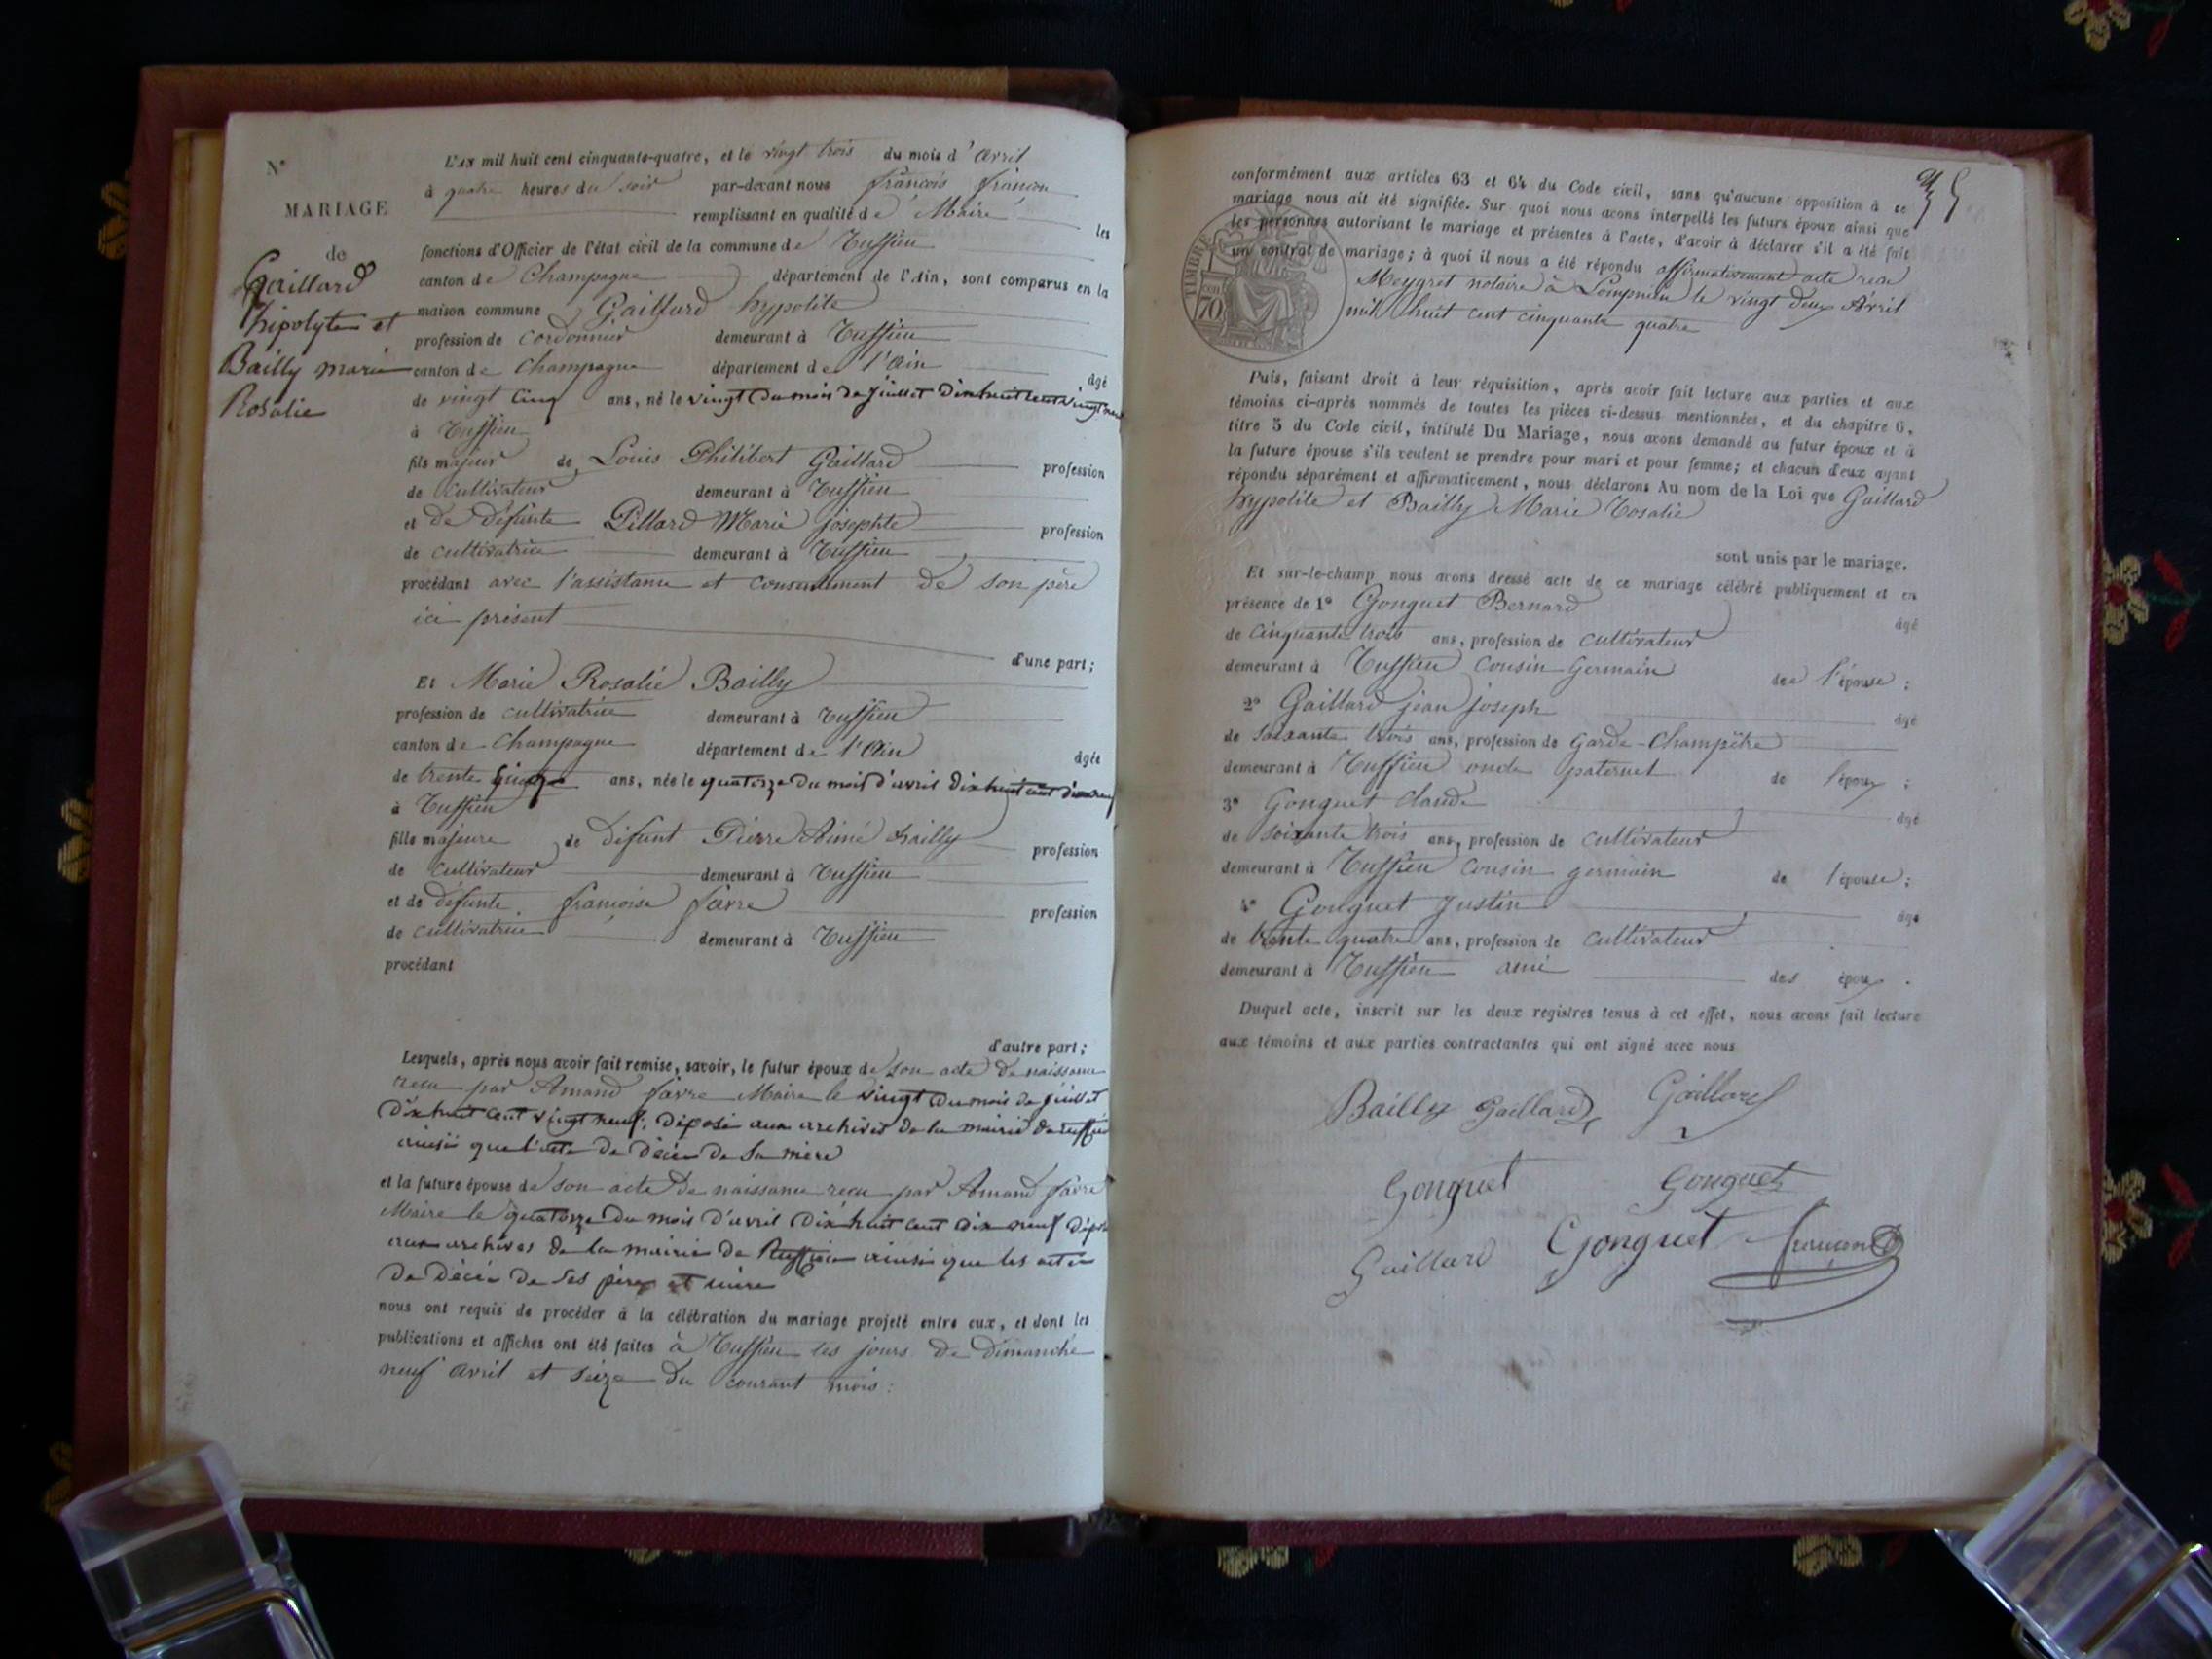 N°
MARIAGE
de
Gaillard
hipolyte et
Bailly marie
Rosalie
L'AN mil huit cent cinquante-quatre, et le vingt trois du mois d'avril
à quatre heures du soir par-devant nous françois françon
remplissant en qualité de Maire les
fonctions d'Officier de l'état civil de la commune de Ruffieu
canton de Champagne département de l'Ain, sont comparus en la
maison commune Gaillard hypolite
profession de cordonnier demeurant à Ruffieu
canton de Champagne département de l'Ain âgé
de vingt cinq ans, né le vingt du mois de juillet dix huit cent vingt neuf
à Ruffieu
fils majeur de Louis Philibert Gaillard profession
de cultivateur demeurant à Ruffieu
et de défunte Pillard Marie josephte profession
de cultivatrice demeurant à Ruffieu
procédant avec l'assistance et consentement de son père
ici présent
d'une part;
Et Marie Rosalie Bailly
profession de cultivatrice demeurant à Ruffieu
canton de Champagne département de l'Ain âgée
de trente ans, née le quatorze du mois d'avril dix huit cent dix neuf
à Ruffieu
fille majeure de défunt Pierre Aimé Bailly profession
de cultivateur demeurant à Ruffieu
et de défunte françoise favre profession
de cultivatrice demeurant à Ruffieu
procédant
d'autre part;
Lesquels, après nous avoir fait remise, savoir, le futur époux de son acte de naissance
recu par Amand favre Maire le vingt du mois de juillet
dix huit cent vingt neuf, déposé aux archives de la mairie de ruffieu
ainsi que l'acte de décès de sa mère
et la future épouse de son acte de naissance recu par Amand favre
Maire le quatorze du mois d'avril dix huit cent dix neuf déposé
aux archives de la mairie de Ruffieu ainsi que les actes
de décès de ses père et mère
nous ont requis de procéder à la célébration du mariage projeté entre eux, et dont les
publications et affiches ont été faites à Ruffieu les jours de dimanche
neuf avril et seize du courant mois:
conformément aux articles 63 et 64 du Code civil, sans qu'aucune opposition à ce
mariage nous ait été signifiée. Sur quoi nous avons interpellé les futurs époux ainsi que
les personnes autorisant le mariage et présentes à l'acte, d'avoir à déclarer s'il a été fait
un contrat de mariage; à quoi il nous a été répondu affirmativement acte recu
Meygret notaire à Lompnieu le vingt deux Avril
mil huit cent cinquante quatre
TIMBRE
70
Puis, faisant droit à leur réquisition, après avoir fait lecture aux parties et aux
témoins ci-après nommés de toutes les pièces ci-dessus mentionnées, et du chapitre 6,
titre 5 du Code civil, intitulé Du Mariage, nous avons demandé au futur époux et à
la future épouse s'ils veulent se prendre pour mari et pour femme; et chacun d'eux ayant
répondu séparément et affirmativement, nous déclarons Au nom de la Loi que Gaillard
hypolite et Bailly Marie Rosalie
sont unis par le mariage.
Et sur-le-champ nous avons dressé acte de ce mariage célébré publiquement et en
présence de 1° Gonguet Bernard âgé
de cinquante trois ans, profession de cultivateur
demeurant à Ruffieu cousin germain de l'épouse;
2° Gaillard jean joseph âgé
de soixante trois ans, profession de Garde-Champêtre
demeurant à Ruffieu oncle paternel de l'époux;
3° Gonguet Claude âgé
de soixante trois ans, profession de cultivateur
demeurant à Ruffieu cousin germain de l'épouse;
4° Gonguet Justin âgé
de trente quatre ans, profession de cultivateur
demeurant à Ruffieu ami des époux.
Duquel acte, inscrit sur les deux registres tenus à cet effet, nous avons fait lecture
aux témoins et aux parties contractantes qui ont signé avec nous
Bailly Gaillard Gaillard
Gonguet Gonguet
Gaillard Gonguet françon